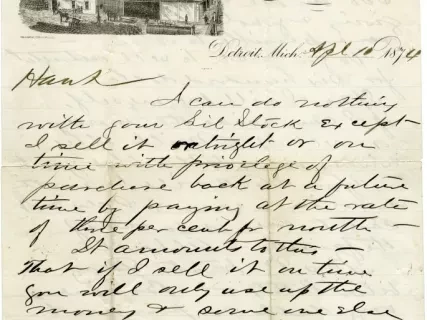 Detroit, Mich. Apl 10 1874
Hank
I can do nothing
with your Stock Except
I sell it outright or on
time with privilege of
purchase back at a future
time by paying at the rate
of three per cent for month –
It amounts to this –
That if I sell it on time
you will only use up the
money & some one else